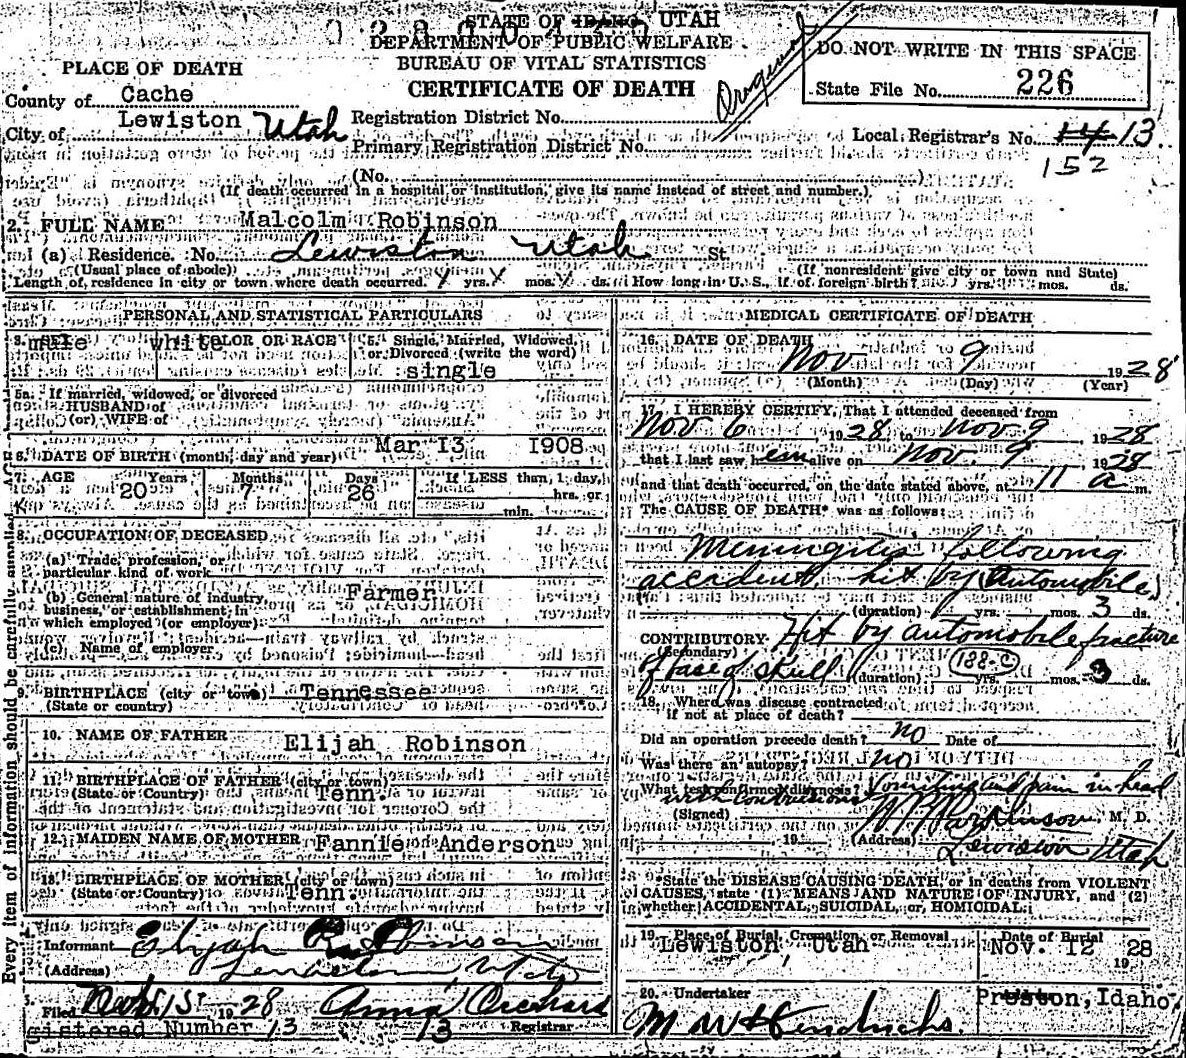 STATE OF IDAHO UTAH
DEPARTMENT OF PUBLIC WELFARE
BUREAU OF VITAL STATISTICS
CERTIFICATE OF DEATH
Original
DO NOT WRITE IN THIS SPACE
State File No. 226
PLACE OF DEATH
County of Cache
City of Lewiston Utah
Registration District No.
Primary Registration District No.
Local Registrar's No. 14 13
152
(No.
(If death occurred in a hospital or institution, give its name instead of street and number.)
2. FULL NAME Malcolm Robinson
(a) Residence. No. Lewiston Utah St.
(Usual place of abode) (If nonresident give city or town and State)
Length of residence in city or town where death occurred. yrs. mos. ds. How long in U. S., if of foreign birth? yrs. mos. ds.
PERSONAL AND STATISTICAL PARTICULARS
3. male white COLOR OR RACE 5. Single, Married, Widowed, or Divorced (write the word)
single
5a. If married, widowed, or divorced
HUSBAND of
(or) WIFE of
6. DATE OF BIRTH (month, day and year) Mar 13 1908
7. AGE Years Months Days If LESS than 1 day,
20 7 26 hrs. or
min.
8. OCCUPATION OF DECEASED
(a) Trade, profession, or
particular kind of work
(b) General nature of industry,
business, or establishment in
which employed (or employer) Farmer
(c) Name of employer
9. BIRTHPLACE (city or town) Tennessee
(State or country)
10. NAME OF FATHER Elijah Robinson
11. BIRTHPLACE OF FATHER (city or town)
(State or Country) Tenn.
12. MAIDEN NAME OF MOTHER Fannie Anderson
13. BIRTHPLACE OF MOTHER (city or town)
(State or Country) Tenn.
Informant Elijah Robinson
(Address) Lewiston, Utah
Filed 1st 1928 Anna Orchard
Registered Number 13 13 Registrar
Every item of information should be carefully supplied.
MEDICAL CERTIFICATE OF DEATH
16. DATE OF DEATH
Nov 9 1928
(Month) (Day) (Year)
17. I HEREBY CERTIFY, That I attended deceased from
Nov 6 1928 to Nov 9, 1928
that I last saw him alive on Nov. 9 1928
and that death occurred, on the date stated above, at 11 a m.
The CAUSE OF DEATH* was as follows:
Meningitis following
accident, hit by automobile
(duration) yrs. mos. 3 ds.
CONTRIBUTORY Hit by automobile fracture
(Secondary)
of base of skull 188-C (duration) yrs. mos. 3 ds.
18. Where was disease contracted
if not at place of death?
Did an operation precede death? no Date of
Was there an autopsy? no
What test confirmed diagnosis? Vomiting and pain in head
with contusions
(Signed) W P Parkinson M. D.
19 (Address) Lewiston Utah
*State the DISEASE CAUSING DEATH, or in deaths from VIOLENT
CAUSES, state (1) MEANS AND NATURE OF INJURY, and (2)
whether ACCIDENTAL, SUICIDAL, or, HOMICIDAL.
19. Place of Burial, Cremation, or Removal Date of Burial
Lewiston, Utah Nov. 12 1928
20. Undertaker Preston, Idaho.
M W Hendricks.